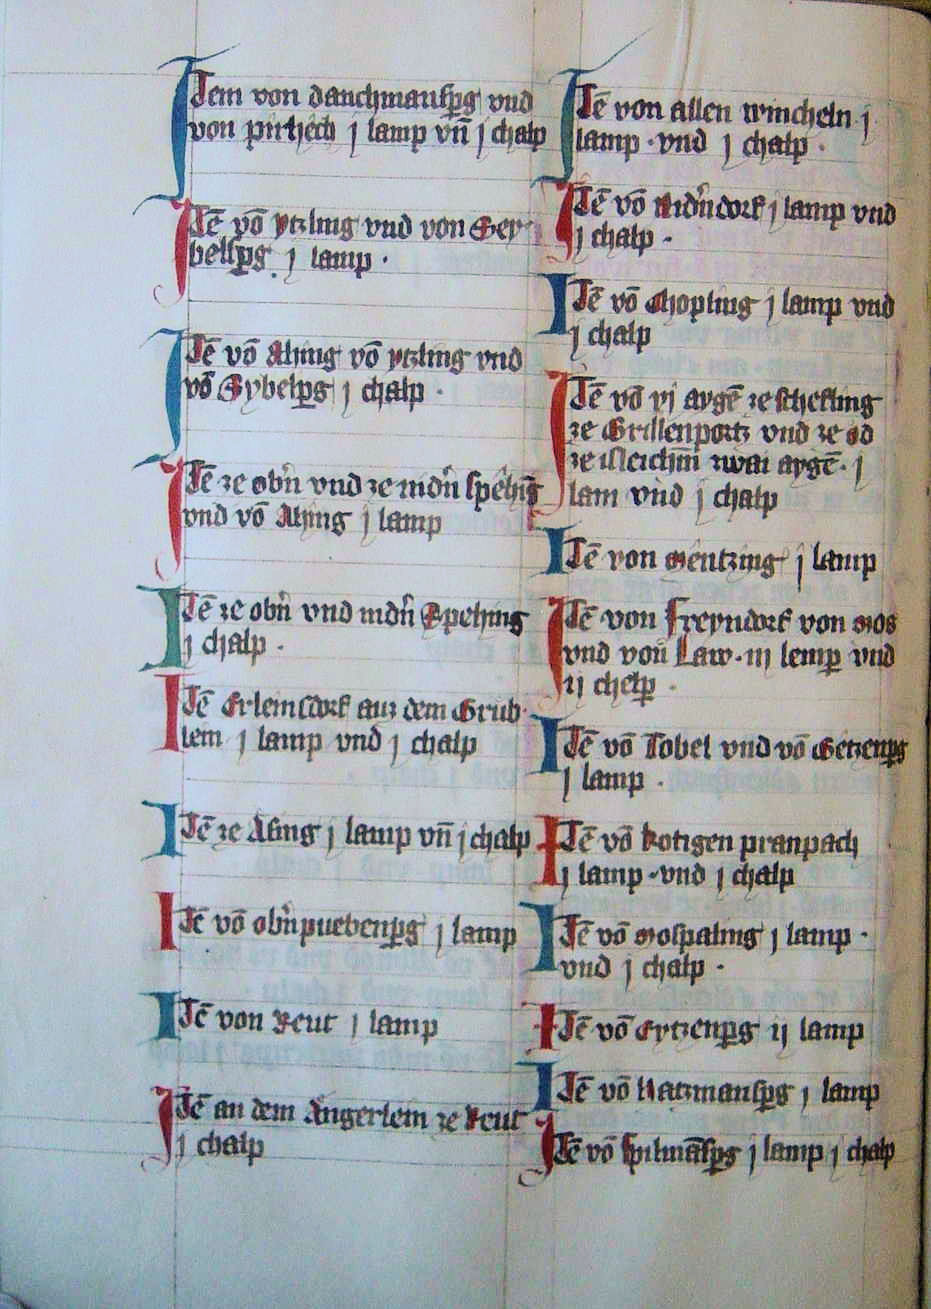 Item von danchmansꝑg vnd
von pirhech j lamp vn̄ j chalp
Itē vō ytzling vnd von Gey
belsꝑg j lamp ·
Itē vō Ahing vō ytzling vnd
vō Gybelꝑg j chalp ·
Itē ze obn̄ vnd ze nidn̄
vnd vō Ahing j lamp
Itē ze obn̄ vnd nidn̄ Spehing
j chalp ·
Itē Erleinsdorf auz dem Grub
lem j lamp vnd j chalp
Itē ze Asing j lamp vn̄ j chalp
Itē vō obn̄puebenꝑg j lamp
Itē von Reut j lamp
Itē an dem Angerlein ze Reut
j chalp
Itē von allen wincheln j
lamp · vnd j chalp ·
Itē vō Nidn̄dorf j lamp vnd
j chalp ·
Itē vō Chopling j lamp vnd
j chalp
Itē vō vj aygē ze
ze Grillenportz vnd ze öd
ze zwai aygē · j
lam vnd j chalp
Itē von Mentzing j lamp
Itē von Freyndorf von Mos
vnd von Law · iij lemꝑ vnd
ij chelꝑ ·
Itē vō Tobel vnd vō Getzenꝑg
j lamp ·
Itē vō Rotigen pranpach
j lamp · vnd j chalp
Itē vō Mospaling j lamp ·
vnd j chalp ·
Itē vō Eytzenꝑg ij lamp
Itē vō Natzmansꝑg j lamp
Itē vō Spilmāsꝑg j lamp j chalp